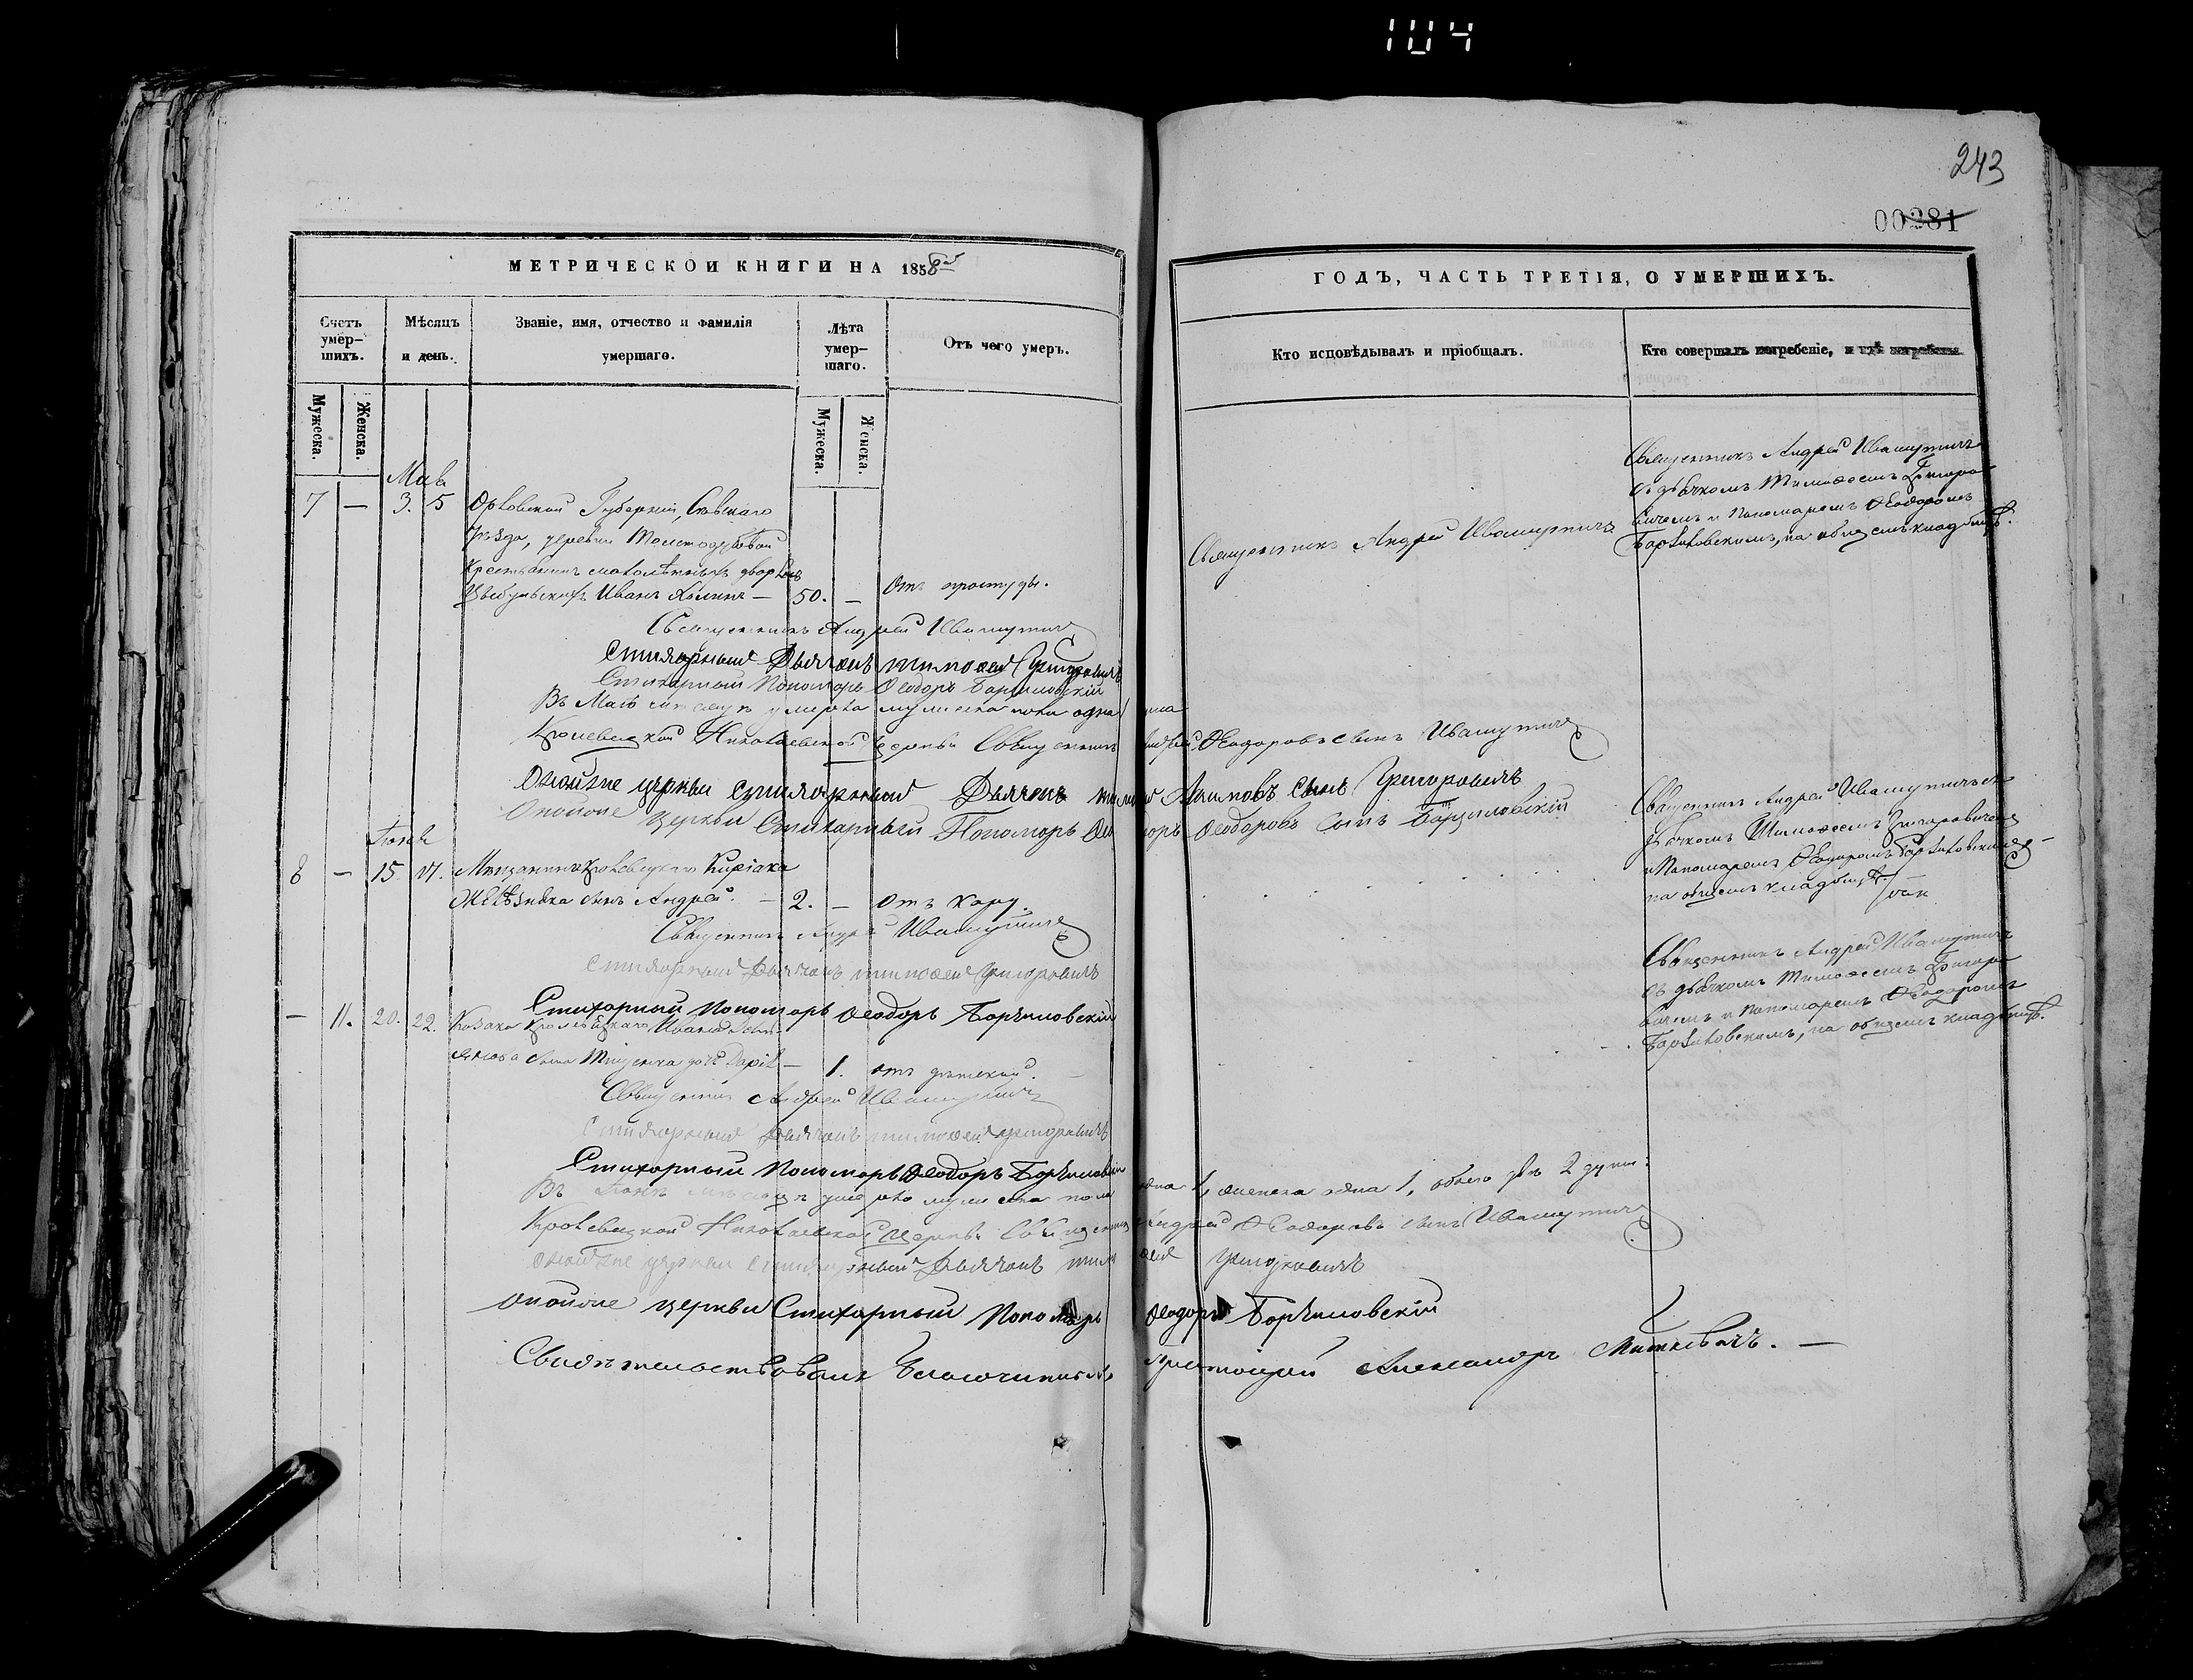 104
243
00281
МЕТРИЧЕСКОЙ КНИГИ НА 1858й
ГОДЪ, ЧАСТЬ ТРЕТІЯ, О УМЕРШИХЪ.
Счетъ умер–шихъ.
Мѣсяцъ и день.
Званіе, имя, отчество и фамилія умершаго.
Лѣта умер–шаго.
Отъ чего умеръ.
Кто исповѣдывалъ и пріобщалъ.
Кто совершалъ погребеніе, и гдѣ погребены
Мужеска.
Женска.
Мужеска.
Женска.
Маія
7 — 3. 5 Орловской Губерніи, Сѣвскаго
Уѣзда, деревни Толстодубовой
Крестьянинъ малолѣтныхъ дворянъ
Иванъ — 50. — Отъ простуды.
Священникъ Андрей Ивашутичъ
Священникъ Андрей Ивашутичъ
съ дьячкомъ Тимофеемъ Григоро
вичемъ и Пономаремъ Ѳеодоромъ
Барзиловскимъ, на общемъ кладбищѣ.
Священникъ Андрей Ивашутичъ
Стихарный Дьячокъ Тимофей Григоровичъ
Стихарный Пономарь Ѳеодоръ Барзиловскій
Въ Маѣ мѣсяцѣ умерла мужеска пола одна душа
Кролевецкой Николаевской Церкви Священникъ Андрей Ѳеодоровъ сынъ Ивашутичъ
Онойже церкви стихарный Дьячокъ Тимофей Акимовъ сынъ Григоровичъ
Онойже церкви Стихарный Пономарь Ѳеодоръ Ѳеодоровъ сынъ Барзиловскій
Іюня
8 — 15 17. Мѣщанина Кролевецкаго Киріака
Желѣзняка сынъ Андрей. — 2. — Отъ кору.
Священникъ Андрей Ивашутичъ съ
дьячкомъ Тимофеемъ Григоровичемъ
и Пономаремъ Ѳеодоромъ Барзиловскимъ
на общемъ кладбищѣ
Священникъ Андрей Ивашутичъ
Стихарный Дьячокъ Тимофей Григоровичъ
Стихарный Пономарь Ѳеодоръ Барзиловскій
— 11. 20. 22. Козака Кролевецкаго Ивана
сына Тищенка дочь Дарія — 1. отъ дѣтской.
Священникъ Андрей Ивашутичъ
съ дьячкомъ Тимофеемъ Григоро
вичемъ и пономаремъ Ѳеодоромъ
Барзиловскимъ, на общемъ кладбищѣ.
Священникъ Андрей Ивашутичъ
Стихарный Дьячокъ Тимофей Григоровичъ
Стихарный Пономарь Ѳеодоръ Барзиловскій
Въ Іюнѣ мѣсяцѣ умерло мужеска пола одна 1, женска одна 1, обоего двѣ 2 души.
Кролевецкой Николаевской Церкви Священникъ Андрей Ѳеодоровъ сынъ Ивашутичъ
Онойже церкви Стихарный Дьячокъ Тимофей Григоровичъ
Онойже церкви Стихарный Пономарь Ѳеодоръ Барзиловскій
Свидѣтельствовалъ Благочинный Протоіерей Александръ Маткевичъ. —